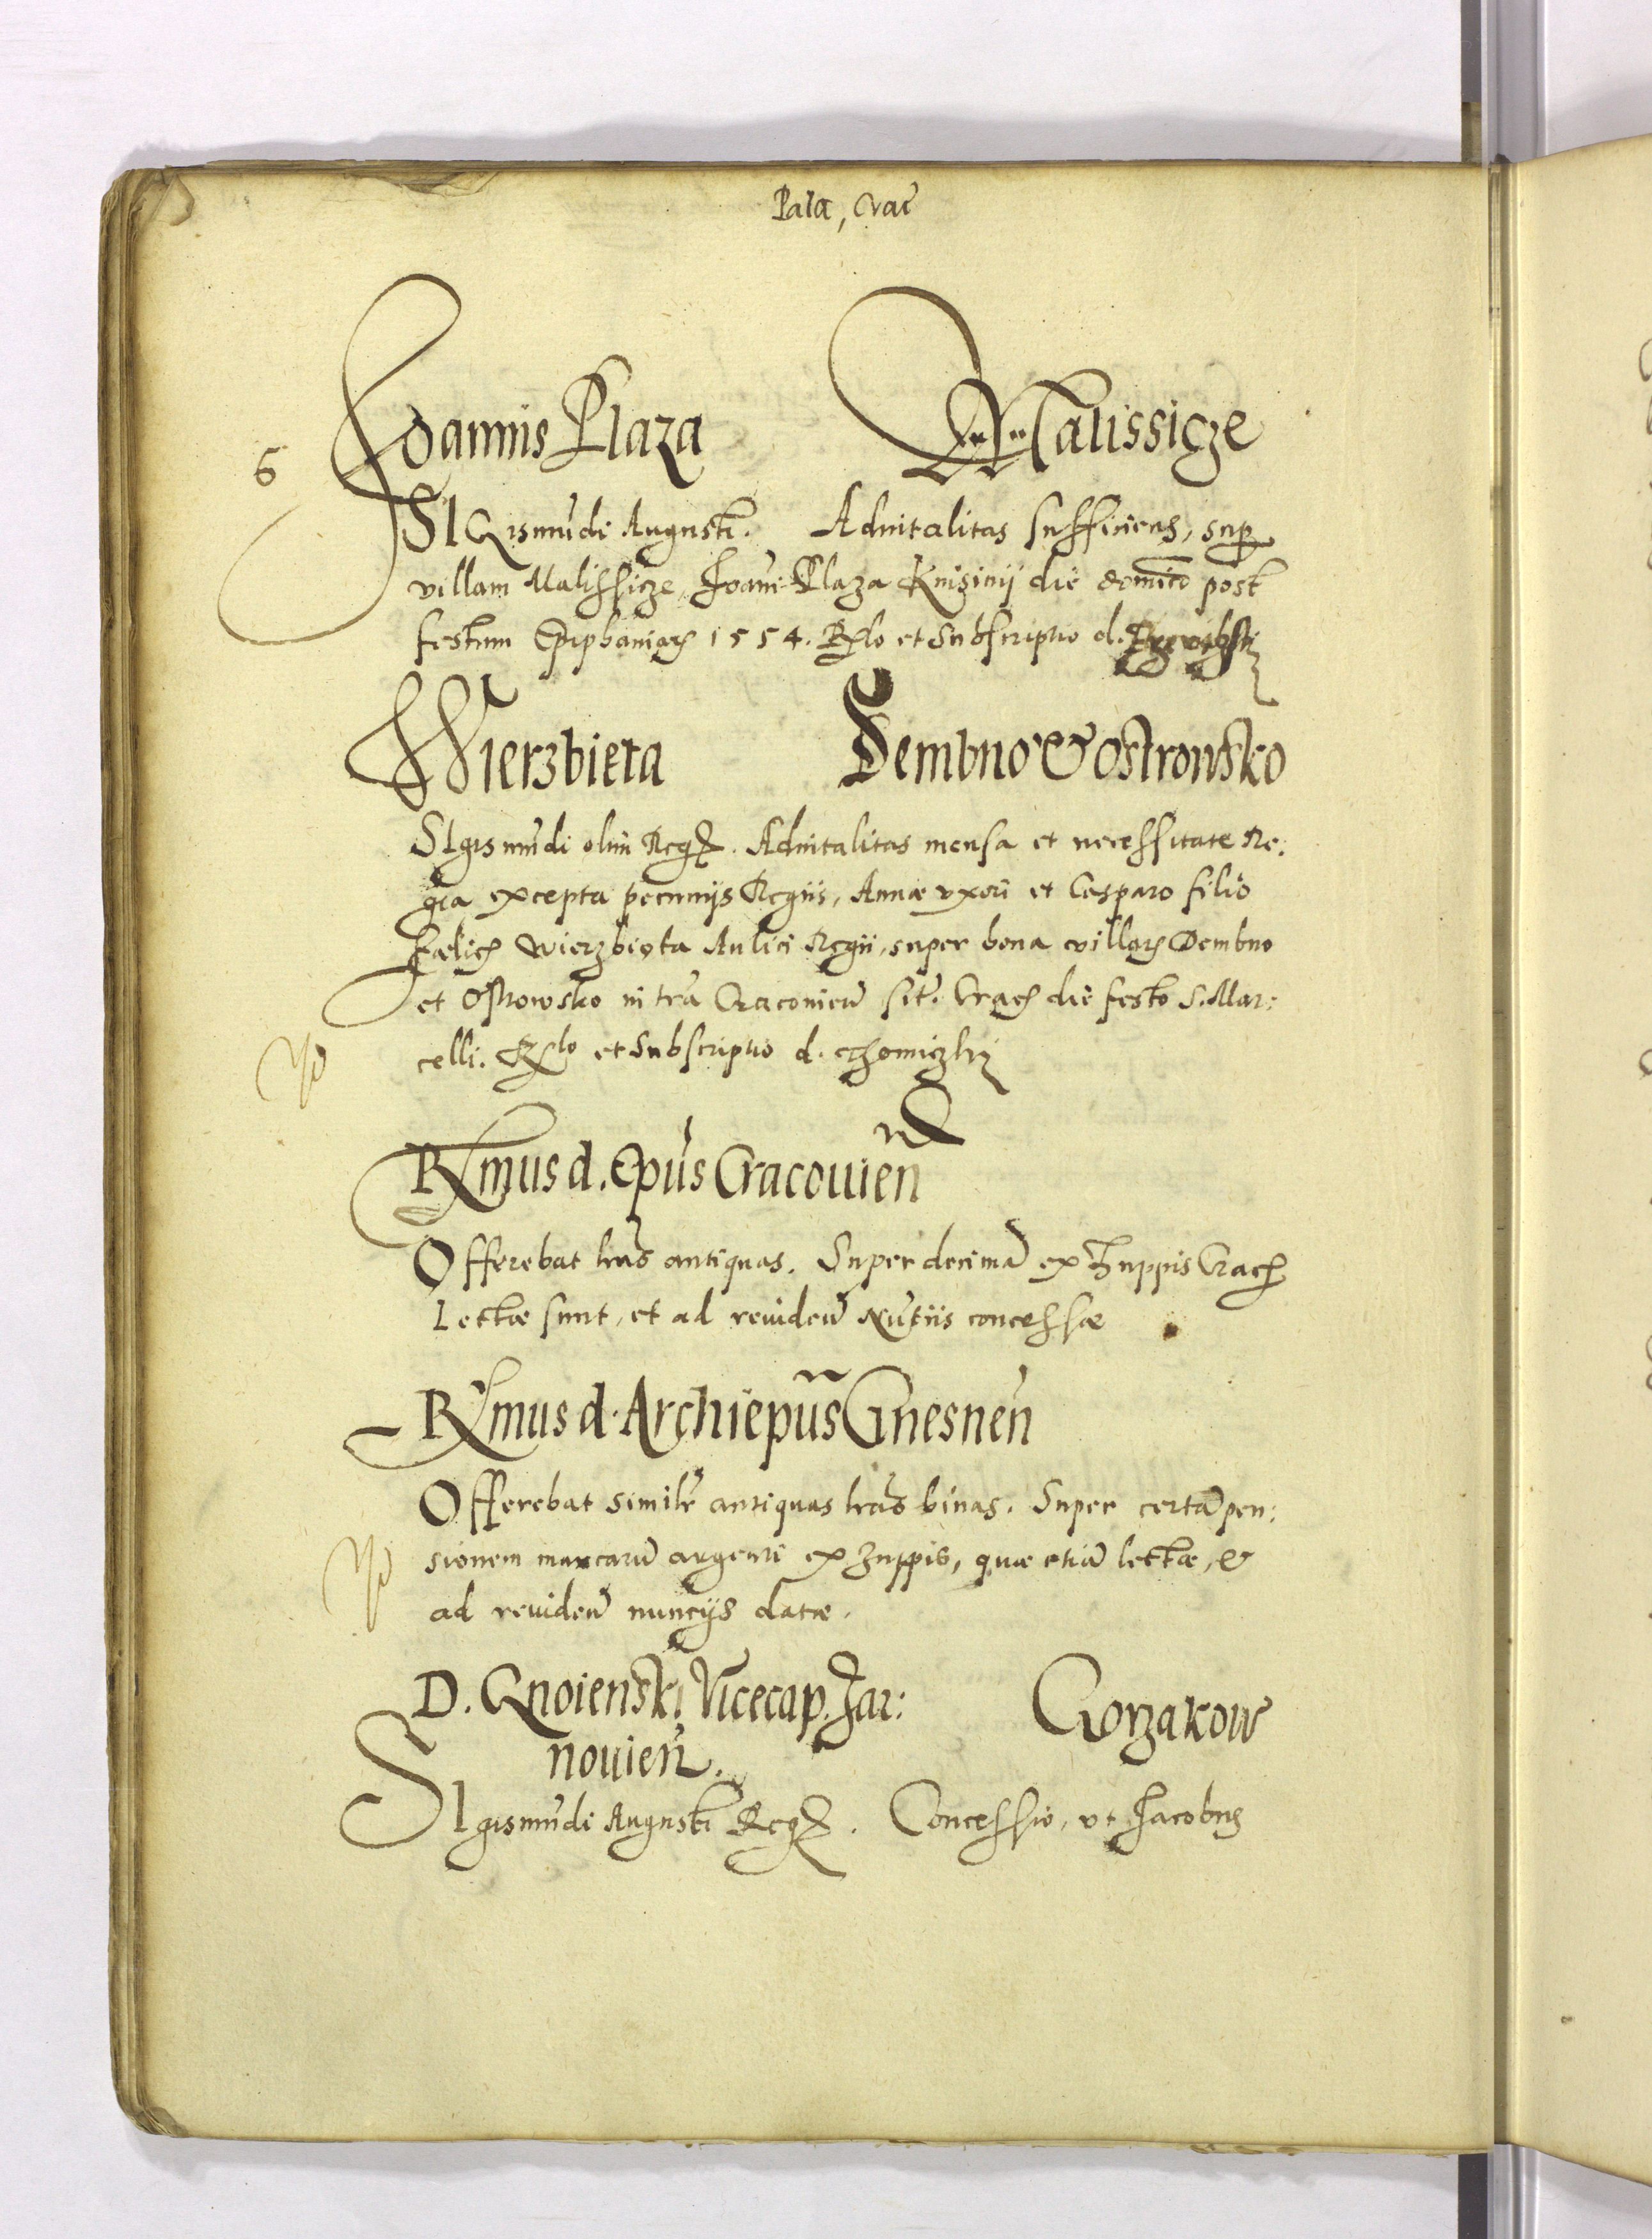 Pala, Crac̃
Ioannis Plaza Malissicze
6
SIGismũdi Augusti. Aduitalitas sufficiens, sup
villam Malissicze, Ioañi Plaza Knisinij die domĩco post
festum Epiphaniarȝ 1554. Rlo et Subscriptio d.
Wierzbieta Dembno & Ostrowsko
SIgismũdi olim Regꝭ. Aduitalitas mensa et necessitate Re:
gia excepta pecunijs Regiis, Annæ vxori et Casparo filio
Fælicȝ Wierzbięta Aulici Regii, super bona villarȝ Dembno
et Ostrowsko in tr̃a Cracovieñ sit̃. Cracȝ die festo S. Mar:
celli. Rlo et Subscriptio d. Chomiczky
Rx̃mus d. Epũs Cracouieñ
Offerebat lr̃as antiquas. Super decimã ex Zuppis Cracȝ
Lectæ sunt, et ad reuideñ Nũtiis concessæ
Rx̃mus d. Archiepũs Gnesneñ
Offerebat similr̃ antiquas lr̃as binas. Super certã pen:
sionem marcarũ argenti ex Zuppis, quæ etiã lectæ, &
ad reuideñ nuncijs datæ.
D. Gnoienski Vicecap. Tar: Gorzakow
nouieñ.
SIgismũdi Augusti Regꝭ. Concessio, vt Iacobus